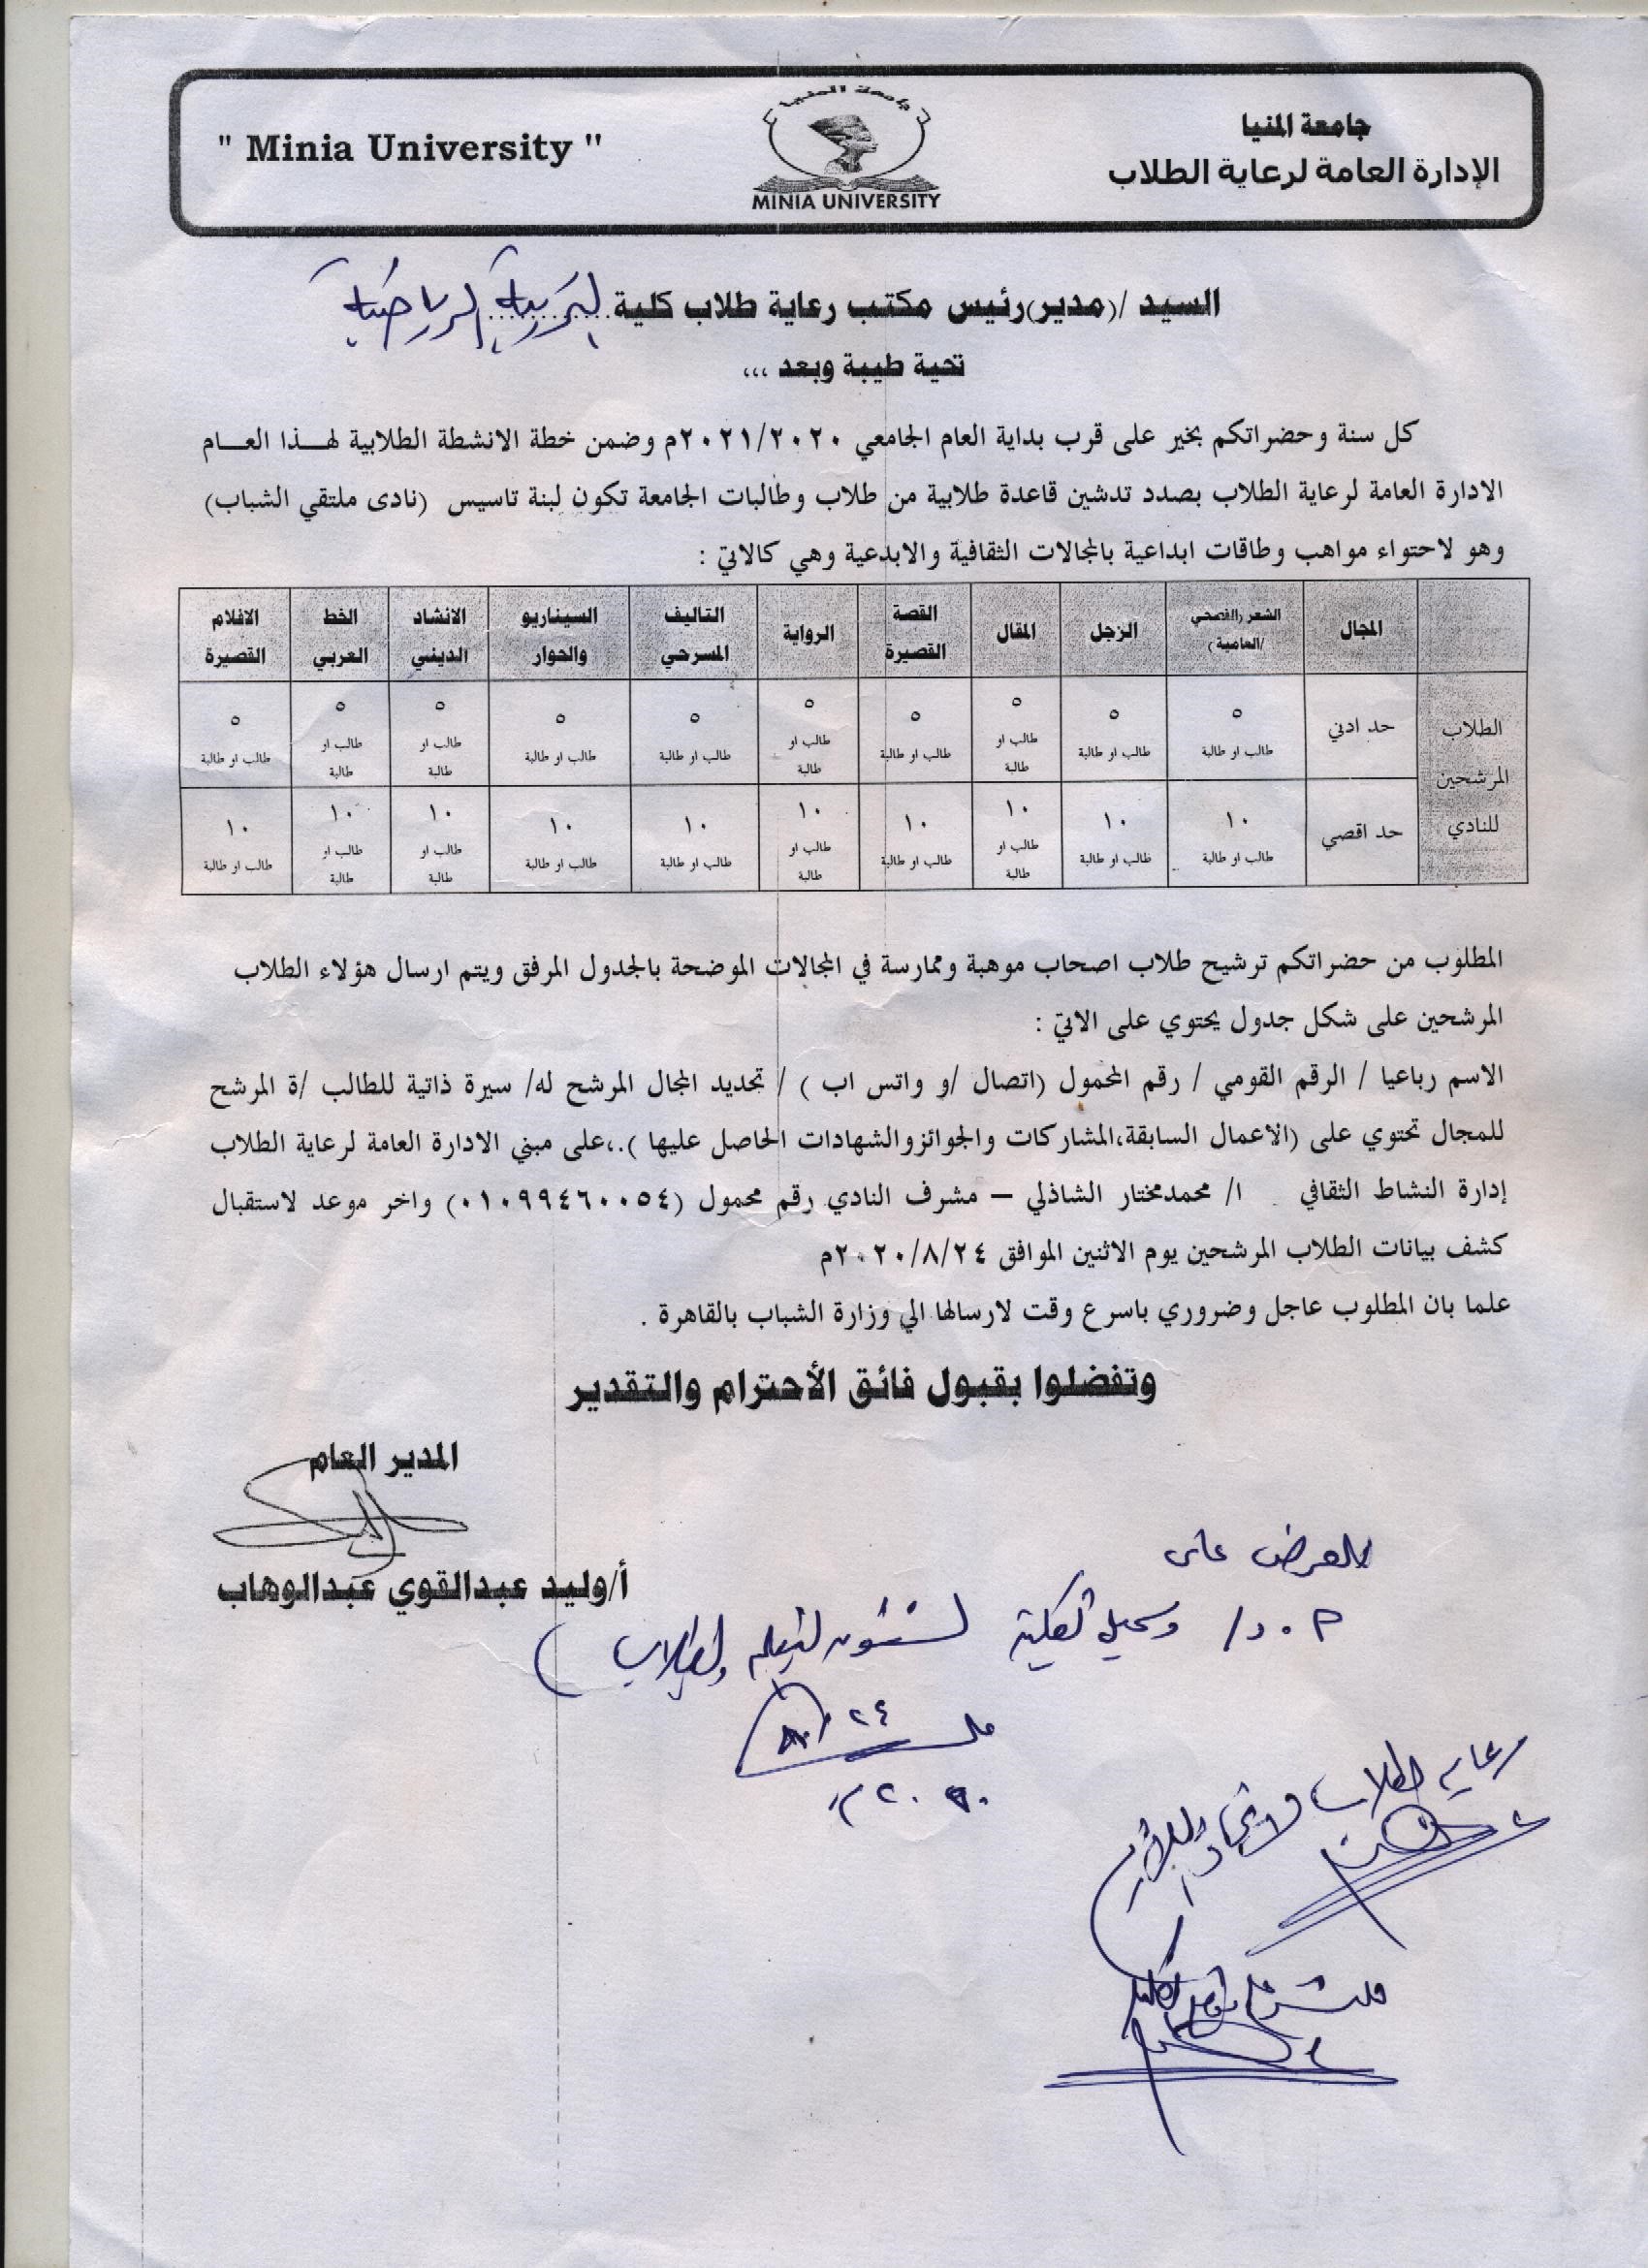 جامعة المنيا
الإدارة العامة لرعاية الطلاب
جامعة المنيا
MINIA UNIVERSITY
" Minia University "
السيد /(مدير)رئيس مكتب رعاية طلاب كلية التربية الرياضية
تحية طيبة وبعد ،،،
كل سنة وحضراتكم بخير على قرب بداية العام الجامعي ٢٠٢١/٢٠٢٠م وضمن خطة الانشطة الطلابية لهذا العام
الادارة العامة لرعاية الطلاب بصدد تدشين قاعدة طلابية من طلاب وطالبات الجامعة تكون لبنة تاسيس (نادى ملتقي الشباب)
وهو لاحتواء مواهب وطاقات ابداعية بالمجالات الثقافية والابدعية وهي كالاتي :
المجال | الشعر (الفصحي /العامية) | الزجل | المقال | القصة القصيرة | الرواية | التاليف المسرحي | السيناريو والحوار | الانشاد الديني | الخط العربي | الافلام القصيرة
الطلاب المرشحين للنادي
حد ادني | ٥ طالب او طالبة | ٥ طالب او طالبة | ٥ طالب او طالبة | ٥ طالب او طالبة | ٥ طالب او طالبة | ٥ طالب او طالبة | ٥ طالب او طالبة | ٥ طالب او طالبة | ٥ طالب او طالبة | ٥ طالب او طالبة
حد اقصي | ١٠ طالب او طالبة | ١٠ طالب او طالبة | ١٠ طالب او طالبة | ١٠ طالب او طالبة | ١٠ طالب او طالبة | ١٠ طالب او طالبة | ١٠ طالب او طالبة | ١٠ طالب او طالبة | ١٠ طالب او طالبة | ١٠ طالب او طالبة
المطلوب من حضراتكم ترشيح طلاب اصحاب موهبة وممارسة في المجالات الموضحة بالجدول المرفق ويتم ارسال هؤلاء الطلاب
المرشحين على شكل جدول يحتوي على الاتي :
الاسم رباعيا / الرقم القومي / رقم المحمول (اتصال /و واتس اب ) / تحديد المجال المرشح له/ سيرة ذاتية للطالب /ة المرشح
للمجال تحتوي على (الاعمال السابقة،المشاركات والجوائزوالشهادات الحاصل عليها ).،على مبني الادارة العامة لرعاية الطلاب
إدارة النشاط الثقافي ا/ محمدمختار الشاذلي – مشرف النادي رقم محمول (٠١٠٩٩٤٦٠٠٥٤) واخر موعد لاستقبال
كشف بيانات الطلاب المرشحين يوم الاثنين الموافق ٢٠٢٠/٨/٢٤م
علما بان المطلوب عاجل وضروري باسرع وقت لارسالها الي وزارة الشباب بالقاهرة .
وتفضلوا بقبول فائق الأحترام والتقدير
المدير العام
أ/وليد عبدالقوي عبدالوهاب
للعرض على
م . د/ وكيل الكلية لشئون التعليم والطلاب
٢٤
رعاية الطلاب